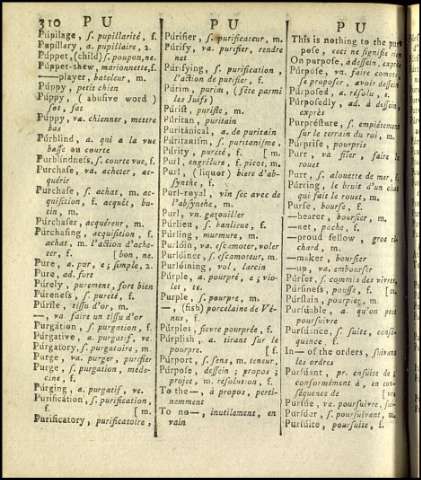 310 P U
P U
P U
Púpilage, ſ. pupillarité, f.
Púpillary, a. pupillaire, 2.
Púppet, (child) ſ. poupon, ne.
Púppet-shew, marionnette, f.
——player, bateleur, m.
Púppy, petit chien
Púppy, (abusive word)
sot, fat
Púppy, va. chienner, mettre
bas
Púrblind, a. qui a la vue
basse ou courte
Púrblindness, ſ. courte vue, f.
Púrchase, va. acheter, ac-
quérir
Púrchase, ſ. achat, m. ac-
quisition, f. acquêt, bu-
tin, m.
Púrchaser, acquéreur, m.
Púrchasing, acquisition, f.
achat, m. l'action d'ache-
ter, f. [ bon, ne.
Pure, a. pur, e; simple, 2.
Pure, ad. fort
Púrely, purement, fort bien
Púreness, ſ. pureté, f.
Púrfle, tissu d'or, m.
—, va. faire un tissu d'or
Purgátion, ſ. purgation, f.
Púrgative, a. purgatif, ve.
Púrgatory, ſ. purgatoire, m.
Purge, va. purger, purifier
Purge, ſ. purgation, méde-
cine, f.
Púrging, a. purgatif, ve.
Purificátion, ſ. purification,
f. [ m.
Purificatory, purificatoire,
Púrifier, ſ. purificateur, m.
Púrify, va. purifier, rendre
net
Púrifying, ſ. purification,
l'action de purifier, f.
Púrim, purim, (fête parmi
les Juifs)
Púrist, puriste, m.
Púritan, puritain
Puritánical, a. de puritain
Púritanism, ſ. puritanisme, m.
Púrity, pureté, f. [ m.
Purl, engrêlure, f. picot, m.
Purl, (liquor) biere d'ab-
synthe, f.
Purl-royal, vin sec avec de
l'absynthe, m.
Purl, vn. gazouiller
Púrlieu, ſ. banlieue, f.
Púrling, murmure, m.
Purlóin, va. escamoter, voler
Purlóiner, ſ. escamoteur, m.
Purlóining, vol, larcin
Púrple, a. pourpré, e; vio-
let, te.
Púrple, ſ. pourpre, m.
—, (fish) porcelaine de Vé-
nus, f.
Púrples, fievre pourprée, f.
Púrplish, a. tirant sur le
pourpre. [ f.
Púrport, ſ. sens, m. teneur,
Púrpose, dessein; propos;
projet, m. résolution, f.
To the—, à propos, perti-
nemment
To no—, inutilement, en
vain
This is nothing to the pur-
pose, ceci ne signifie rien
On purpose, à dessein, exprès
Púrpose, va. faire compte,
se proposer, avoir dessein
Púrposed, a. résolu, e.
Púrposedly, ad. à dessein,
exprès
Purprésture, ſ. empiétement
sur le terrain du roi, m.
Púrprise, pourpris
Purr, va. filer, faire le
rouet
Purr, ſ. alouette de mer, f.
Púrring, le bruit d'un chat
qui fait le rouet, m.
Purse, bourse, f.
—bearer, boursier, m.
—net, poche, f.
—proud fellow, gros ri-
chard, m.
—maker, boursier
—up, va. embourser
Púrser, ſ. commis des vivres,
Púrsiness, pousse, f. [ m.
Púrslain, pourpier, m.
Pursúable, a. qu'on peut
poursuivre
Pursúance, ſ. suite, consé-
quence, f.
In— of the orders, suivant
les ordres
Pursúant, pr. ensuite de,
conformément à, en con-
séquence de [ m.
Pursúe, va. poursuivre,
Pursúer, ſ. poursuivant, m.
Pursúit, poursuite, f.